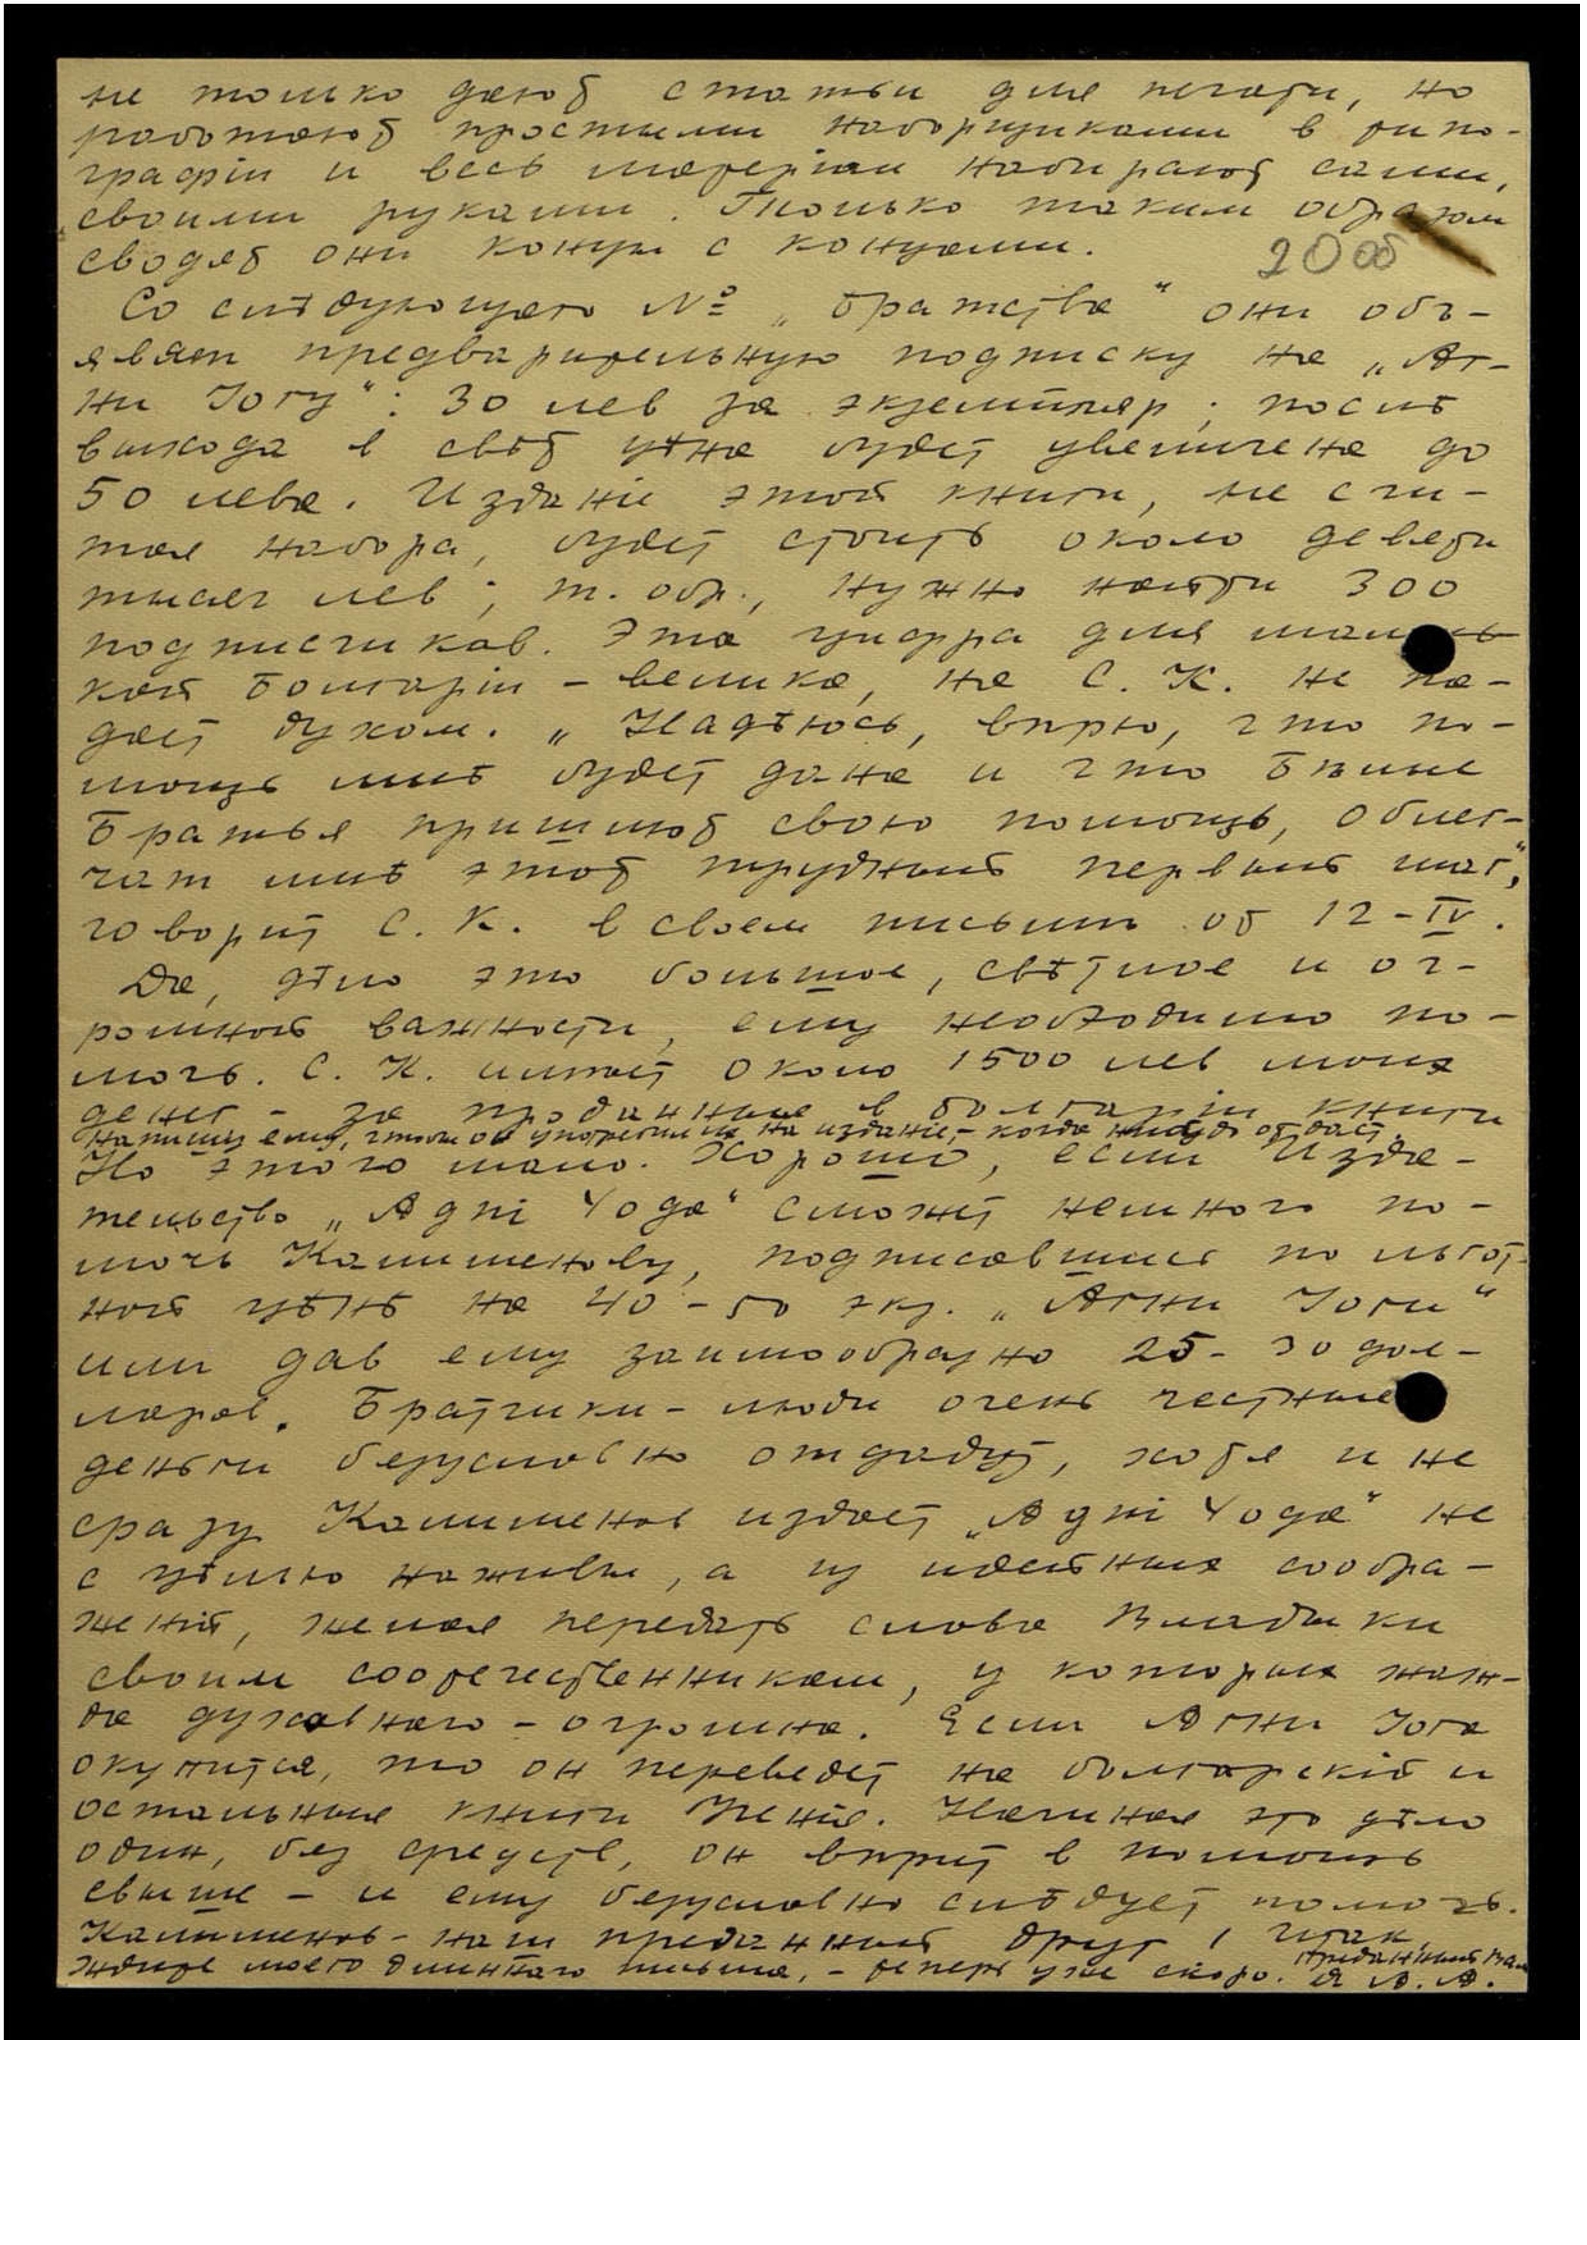 не только дают статьи для печати, но
работают простыми наборщиками в типо-
графіи и весь матеріал набирают сами,
своими руками. Только таким образом
сводят они концы с концами.
20 об
Со слѣдующаго № „Братства“ они объ-
являт предварительную подписку на „Аг-
ни Іогу“: 30 лев за экземпляр; послѣ
выхода в свѣт цѣна будет увеличена до
50 лева. Изданіе этой книги, не счи-
тая набора, будет стоить около девяти
тысяч лев; т. обр., нужно найти 300
подписчиков. Эта цифра для малень-
кой Болгаріи – велика, но С. К. не па-
дает духом. „Надѣюсь, вѣрю, что по-
мощь мнѣ будет дана и что Бѣлые
Братья пришлют свою помощь, облег-
чат мнѣ этот трудный первый шаг“,
говорит С. К. в своем письмѣ от 12-IV.
Да, дѣло это большое, свѣтлое и ог-
ромной важности, ему необходимо по-
мочь. С. К. имѣет около 1500 лев моих
денег – за проданные в Болгаріи книги
Напишу ему, чтобы он употребил их на изданіе, – когда нибудь отдаст.
Но этого мало. Хорошо, если Изда-
тельство „Agni Yoga“ сможет немного по-
мочь Калименову, подписавшись по льгот-
ной цѣнѣ на 40 – 50 экз. „Агни Іоги“
или дав ему заимообразно 25 - 30 дол-
ларов. Братчики – люди очень честные
деньги безусловно отдадут, хотя и не
сразу. Калименов издает „Agni Yoga“ не
с цѣлью наживы, а из идейных сообра-
женій, желая передать слова Владыки
своим соотечественникам, у которых жаж-
да духовнаго – огромна. Если Агни Іога
окупится, то он переведет на болгарскій и
остальные книги Ученія. Начиная это дѣло
один, без средств, он вѣрит в помощь
свыше – и ему безусловно слѣдует помочь.
Калименов – наш преданный друг! Итак,
ждите моего длиннаго письма, – теперь уже скоро. Преданный Вам
Я А. А.